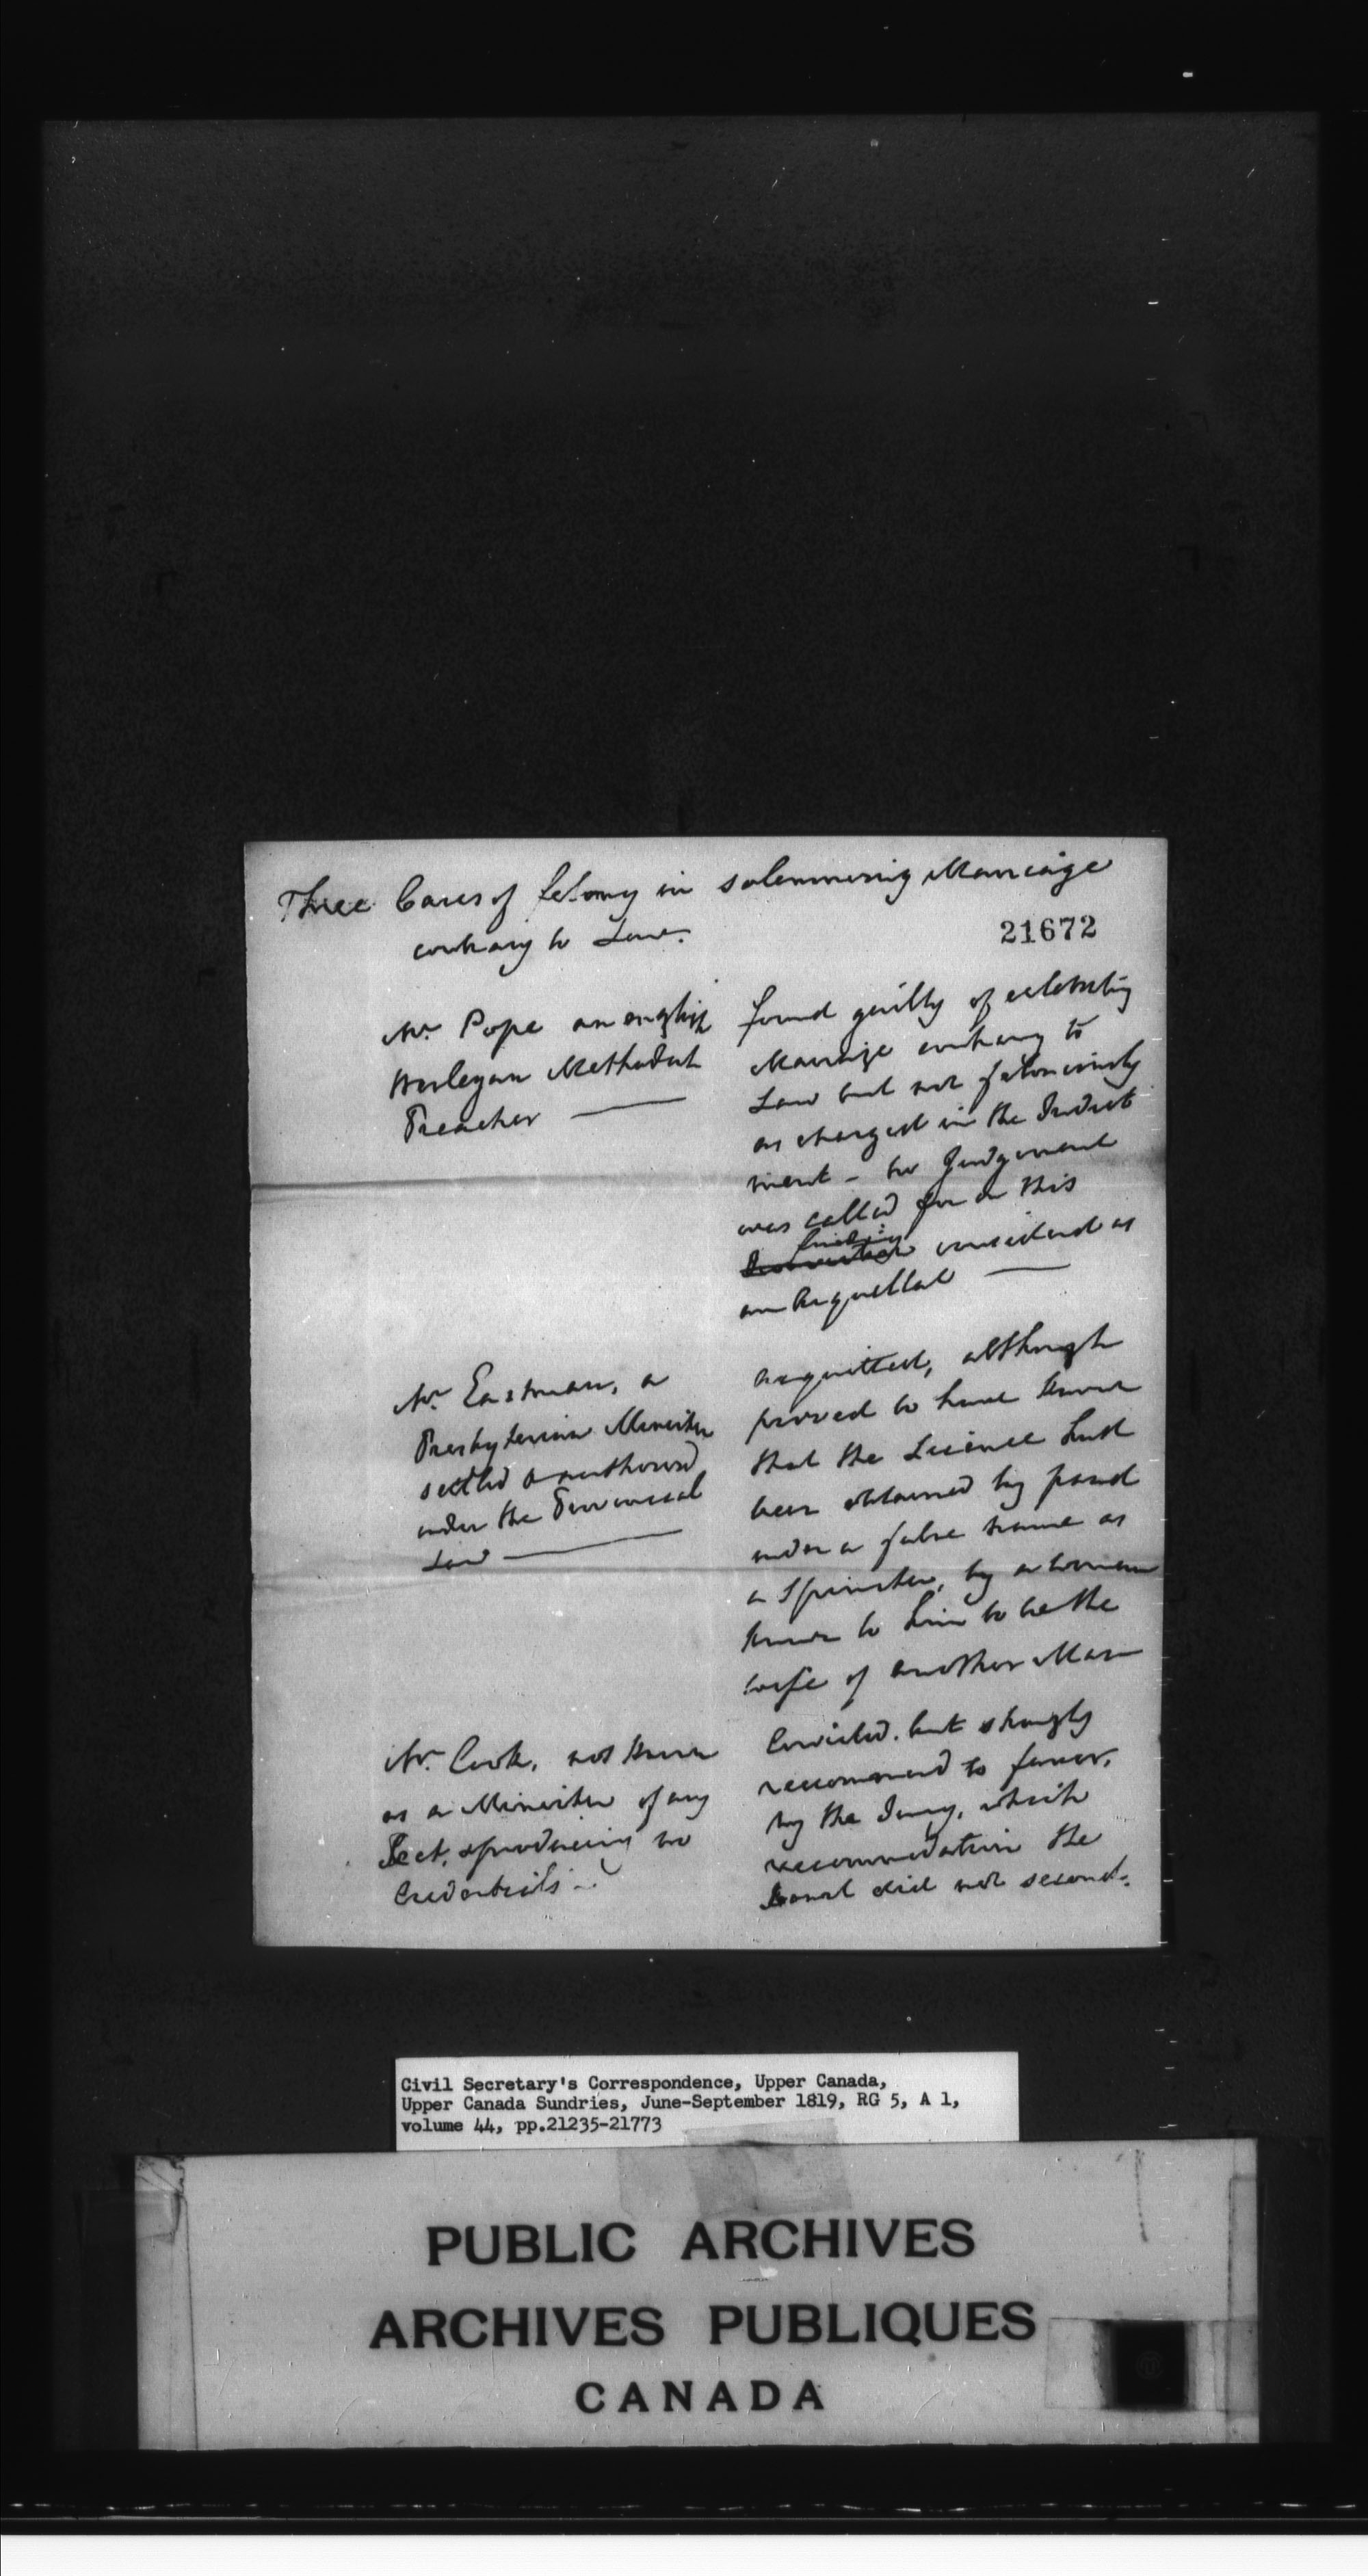 Three Cases of felony in solemnizing Marriage
contrary to Law.
21672
Mr. Pope an english
Wesleyan Methodist
Preacher —
found guilty of celebrating
Marriage contrary to
Law but not feloniously
as charged in the Indict
ment - no Judgement
was called for on this
finding
considered as
an Acquittal —
Mr. Eastman, a
Presbyterian Minister
settled & authorised
under the Provincial
Law —
Acquitted, although
proved to have known
that the Licence had
been obtained by fraud
under a false name as
a Spinster, by a woman
known to him to be the
wife of another Man
Mr. Cook, not known
as a Minister of any
Sect, & producing no
Credentials -
Convicted. but strongly
recommend to favor,
by the Jury, which
recommendation the
did not second.
Civil Secretary's Correspondence, Upper Canada,
Upper Canada Sundries, June-September 1819, RG 5, A 1,
volume 44, pp.21235-21773
PUBLIC ARCHIVES
ARCHIVES PUBLIQUES
CANADA